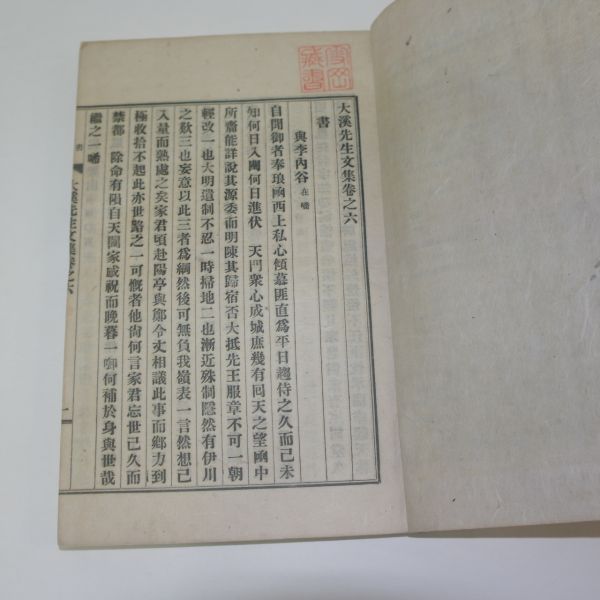 大溪先生文集卷之六
書
與李內谷 在嶓
自聞御者奉琅凾西上私心傾慕匪直爲平日趨侍之久而已未
知何日入闕何日進伏 天門衆心成城庶幾有回天之望凾中
所齎能詳說其源委而明陳其歸宿否大抵先王服章不可一朝
輕改一也大明遺制不忍一時掃地二也漸近殊制隱然有伊川
之歎三也妄意以此三者爲綱然後可無負我嶺表一言然想已
入量而熟處之矣家君頃赴陽亭與鄺令丈相議此事而鄉力到
極收拾不起此亦世路之一可慨者他尙何言家君忘世已久而
禁都 除命有隕自天闔家感祝而晩暮一啣何補於身與世哉
繼之一噃
大溪先生文集卷之六
一